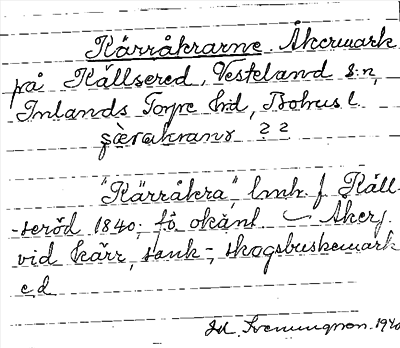 Kärråkrarne. Åkermark
på Källsered, Vesteland s:n,
Inlands Torpe hd, Bohus l.
çèrakranr ? ?
"Kärråkra", lmh. f. Käll-
-seröd 1840; fö okänt. — Åkerj.
vid kärr, sank-, skogsbuskemark
e.d.
1940